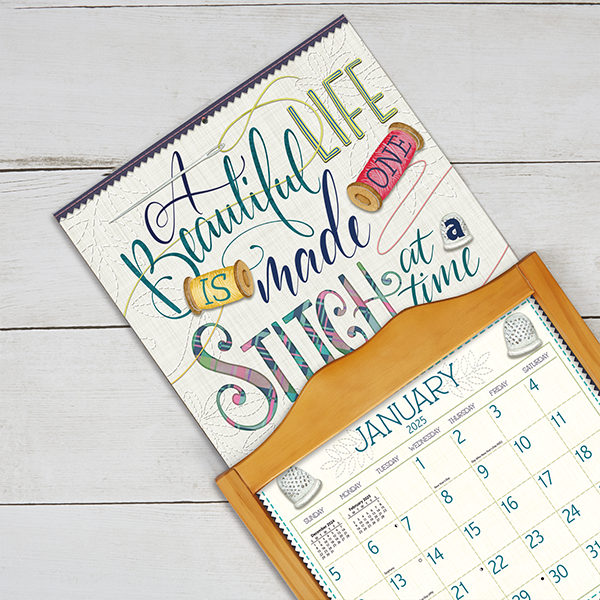 A
Beautiful LIFE
IS made ONE
STITCH at a time
JANUARY
2025
SUNDAY MONDAY TUESDAY WEDNESDAY THURSDAY FRIDAY SATURDAY
December 2024 February 2025
1 2 3 4
5 6 7 8 9 10 11
13 14 15 16 17 18
21 22 23 24 25
29 30 31